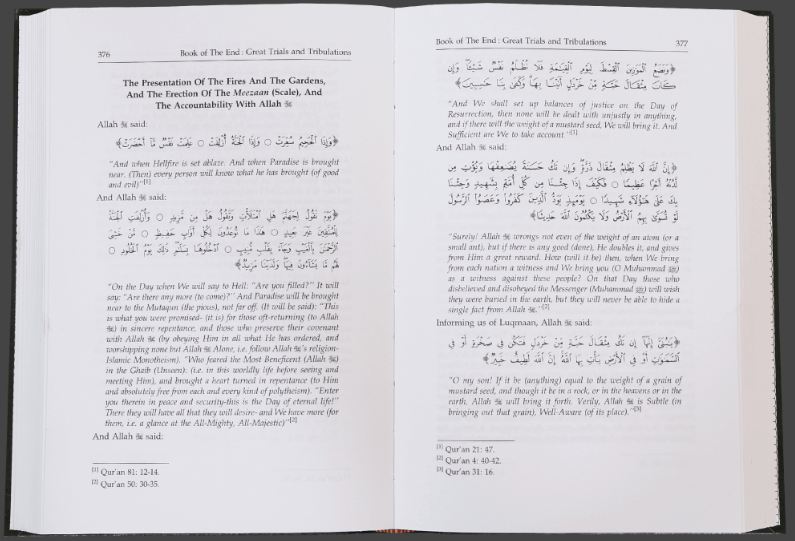 376
Book of The End : Great Trials and Tribulations
The Presentation Of The Fires And The Gardens,
And The Erection Of The Meezaan (Scale), And
The Accountability With Allah ﷻ
Allah ﷻ said:
﴿وَإِذَا ٱلْجَحِيمُ سُعِّرَتْ ○ وَإِذَا ٱلْجَنَّةُ أُزْلِفَتْ ○ عَلِمَتْ نَفْسٌ مَّا أَحْضَرَتْ﴾
"And when Hellfire is set ablaze. And when Paradise is brought
near. (Then) every person will know what he has brought (of good
and evil)."[1]
And Allah ﷻ said:
﴿يَوْمَ نَقُولُ لِجَهَنَّمَ هَلِ ٱمْتَلَأْتِ وَتَقُولُ هَلْ مِن مَّزِيدٍ ○ وَأُزْلِفَتِ ٱلْجَنَّةُ
لِلْمُتَّقِينَ غَيْرَ بَعِيدٍ ○ هَٰذَا مَا تُوعَدُونَ لِكُلِّ أَوَّابٍ حَفِيظٍ ○ مَّنْ خَشِيَ
ٱلرَّحْمَٰنَ بِٱلْغَيْبِ وَجَآءَ بِقَلْبٍ مُّنِيبٍ ○ ٱدْخُلُوهَا بِسَلَٰمٍ ذَٰلِكَ يَوْمُ ٱلْخُلُودِ ○
لَهُم مَّا يَشَآءُونَ فِيهَا وَلَدَيْنَا مَزِيدٌ﴾
"On the Day when We will say to Hell: "Are you filled?" It will
say: "Are there any more (to come)?" And Paradise will be brought
near to the Mutaqun (the pious), not far off. (It will be said): "This
is what you were promised- (it is) for those oft-returning (to Allah
ﷻ) in sincere repentance, and those who preserve their covenant
with Allah ﷻ (by obeying Him in all what He has ordered, and
worshipping none but Allah ﷻ Alone, i.e. follow Allah ﷻ's religion-
Islamic Monotheism). "Who feared the Most Beneficent (Allah ﷻ)
in the Ghaib (Unseen): (i.e. in this worldly life before seeing and
meeting Him), and brought a heart turned in repentance (to Him
and absolutely free from each and every kind of polytheism). "Enter
you therein in peace and security-this is the Day of eternal life!"
There they will have all that they will desire- and We have more (for
them, i.e. a glance at the All-Mighty, All-Majestic)"[2]
And Allah ﷻ said:
[1] Qur'an 81: 12-14.
[2] Qur'an 50: 30-35.
Book of The End : Great Trials and Tribulations
377
﴿وَنَضَعُ ٱلْمَوَٰزِينَ ٱلْقِسْطَ لِيَوْمِ ٱلْقِيَٰمَةِ فَلَا تُظْلَمُ نَفْسٌ شَيْـًٔا وَإِن
كَانَ مِثْقَالَ حَبَّةٍ مِّنْ خَرْدَلٍ أَتَيْنَا بِهَا وَكَفَىٰ بِنَا حَٰسِبِينَ﴾
"And We shall set up balances of justice on the Day of
Resurrection, then none will be dealt with unjustly in anything,
and if there will the weight of a mustard seed, We will bring it. And
Sufficient are We to take account "[1]
And Allah ﷻ said:
﴿إِنَّ ٱللَّهَ لَا يَظْلِمُ مِثْقَالَ ذَرَّةٍ وَإِن تَكُ حَسَنَةً يُضَٰعِفْهَا وَيُؤْتِ مِن
لَّدُنْهُ أَجْرًا عَظِيمًا ○ فَكَيْفَ إِذَا جِئْنَا مِن كُلِّ أُمَّةٍۭ بِشَهِيدٍ وَجِئْنَا
بِكَ عَلَىٰ هَٰٓؤُلَآءِ شَهِيدًا ○ يَوْمَئِذٍ يَوَدُّ ٱلَّذِينَ كَفَرُوا۟ وَعَصَوُا۟ ٱلرَّسُولَ
لَوْ تُسَوَّىٰ بِهِمُ ٱلْأَرْضُ وَلَا يَكْتُمُونَ ٱللَّهَ حَدِيثًا﴾
"Surely! Allah ﷻ wrongs not even of the weight of an atom (or a
small ant), but if there is any good (done), He doubles it, and gives
from Him a great reward. How (will it be) then, when We bring
from each nation a witness and We bring you (O Muhammad ﷺ)
as a witness against these people? On that Day those who
disbelieved and disobeyed the Messenger (Muhammad ﷺ) will wish
they were buried in the earth, but they will never be able to hide a
single fact from Allah ﷻ."[2]
Informing us of Luqmaan, Allah ﷻ said:
﴿يَٰبُنَىَّ إِنَّهَآ إِن تَكُ مِثْقَالَ حَبَّةٍ مِّنْ خَرْدَلٍ فَتَكُن فِى صَخْرَةٍ أَوْ فِى
ٱلسَّمَٰوَٰتِ أَوْ فِى ٱلْأَرْضِ يَأْتِ بِهَا ٱللَّهُ إِنَّ ٱللَّهَ لَطِيفٌ خَبِيرٌ﴾
"O my son! If it be (anything) equal to the weight of a grain of
mustard seed, and though it be in a rock, or in the heavens or in the
earth, Allah ﷻ will bring it forth. Verily, Allah ﷻ is Subtle (in
bringing out that grain), Well-Aware (of its place)."[3]
[1] Qur'an 21: 47.
[2] Qur'an 4: 40-42.
[3] Qur'an 31: 16.